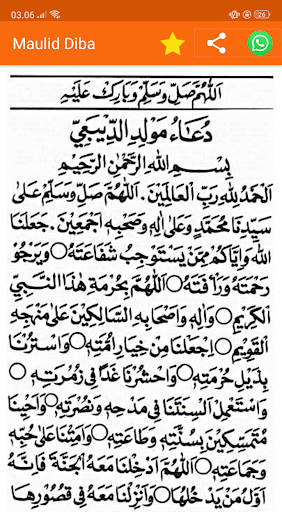 03.06
26
Maulid Diba
اَللّٰهُمَّ صَلِّ وَسَلِّمْ وَبَارِكْ عَلَيْهِ
دُعَاءُ مَوْلِدِ الدِّيبَعِيّ
بِسْمِ اللهِ الرَّحْمٰنِ الرَّحِيْمِ
اَلْحَمْدُ لِلّٰهِ رَبِّ الْعَالَمِيْنَ. اَللّٰهُمَّ صَلِّ وَسَلِّمْ عَلٰى
سَيِّدِنَا مُحَمَّدٍ وَعَلٰى اٰلِهِ وَصَحْبِهِ اَجْمَعِيْنَ. جَعَلَنَا
اللهُ وَاِيَّاكُمْ مِمَّنْ يَسْتَوْجِبُ شَفَاعَتَهُ ○ وَيَرْجُوْ
رَحْمَتَهُ وَرَأْفَتَهُ ○ اَللّٰهُمَّ بِحُرْمَةِ هٰذَا النَّبِيِّ
الْكَرِيْمِ ○ وَاٰلِهِ وَاَصْحَابِهِ السَّالِكِيْنَ عَلٰى مَنْهَجِهِ
الْقَوِيْمِ ○ اِجْعَلْنَا مِنْ خِيَارِ اُمَّتِهِ ○ وَاسْتُرْنَا
بِذَيْلِ حُرْمَتِهِ ○ وَاحْشُرْنَا غَدًا فِيْ زُمْرَتِهِ ○
وَاسْتَعْمِلْ اَلْسِنَتَنَا فِيْ مَدْحِهِ وَنُصْرَتِهِ ○ وَاَحْيِنَا
مُتَمَسِّكِيْنَ بِسُنَّتِهِ وَطَاعَتِهِ ○ وَاَمِتْنَا عَلٰى حُبِّهِ
وَجَمَاعَتِهِ ○ اَللّٰهُمَّ اَدْخِلْنَا مَعَهُ الْجَنَّةَ فَاِنَّهُ
اَوَّلُ مَنْ يَدْخُلُهَا ○ وَاَنْزِلْنَا مَعَهُ فِيْ قُصُوْرِهَا